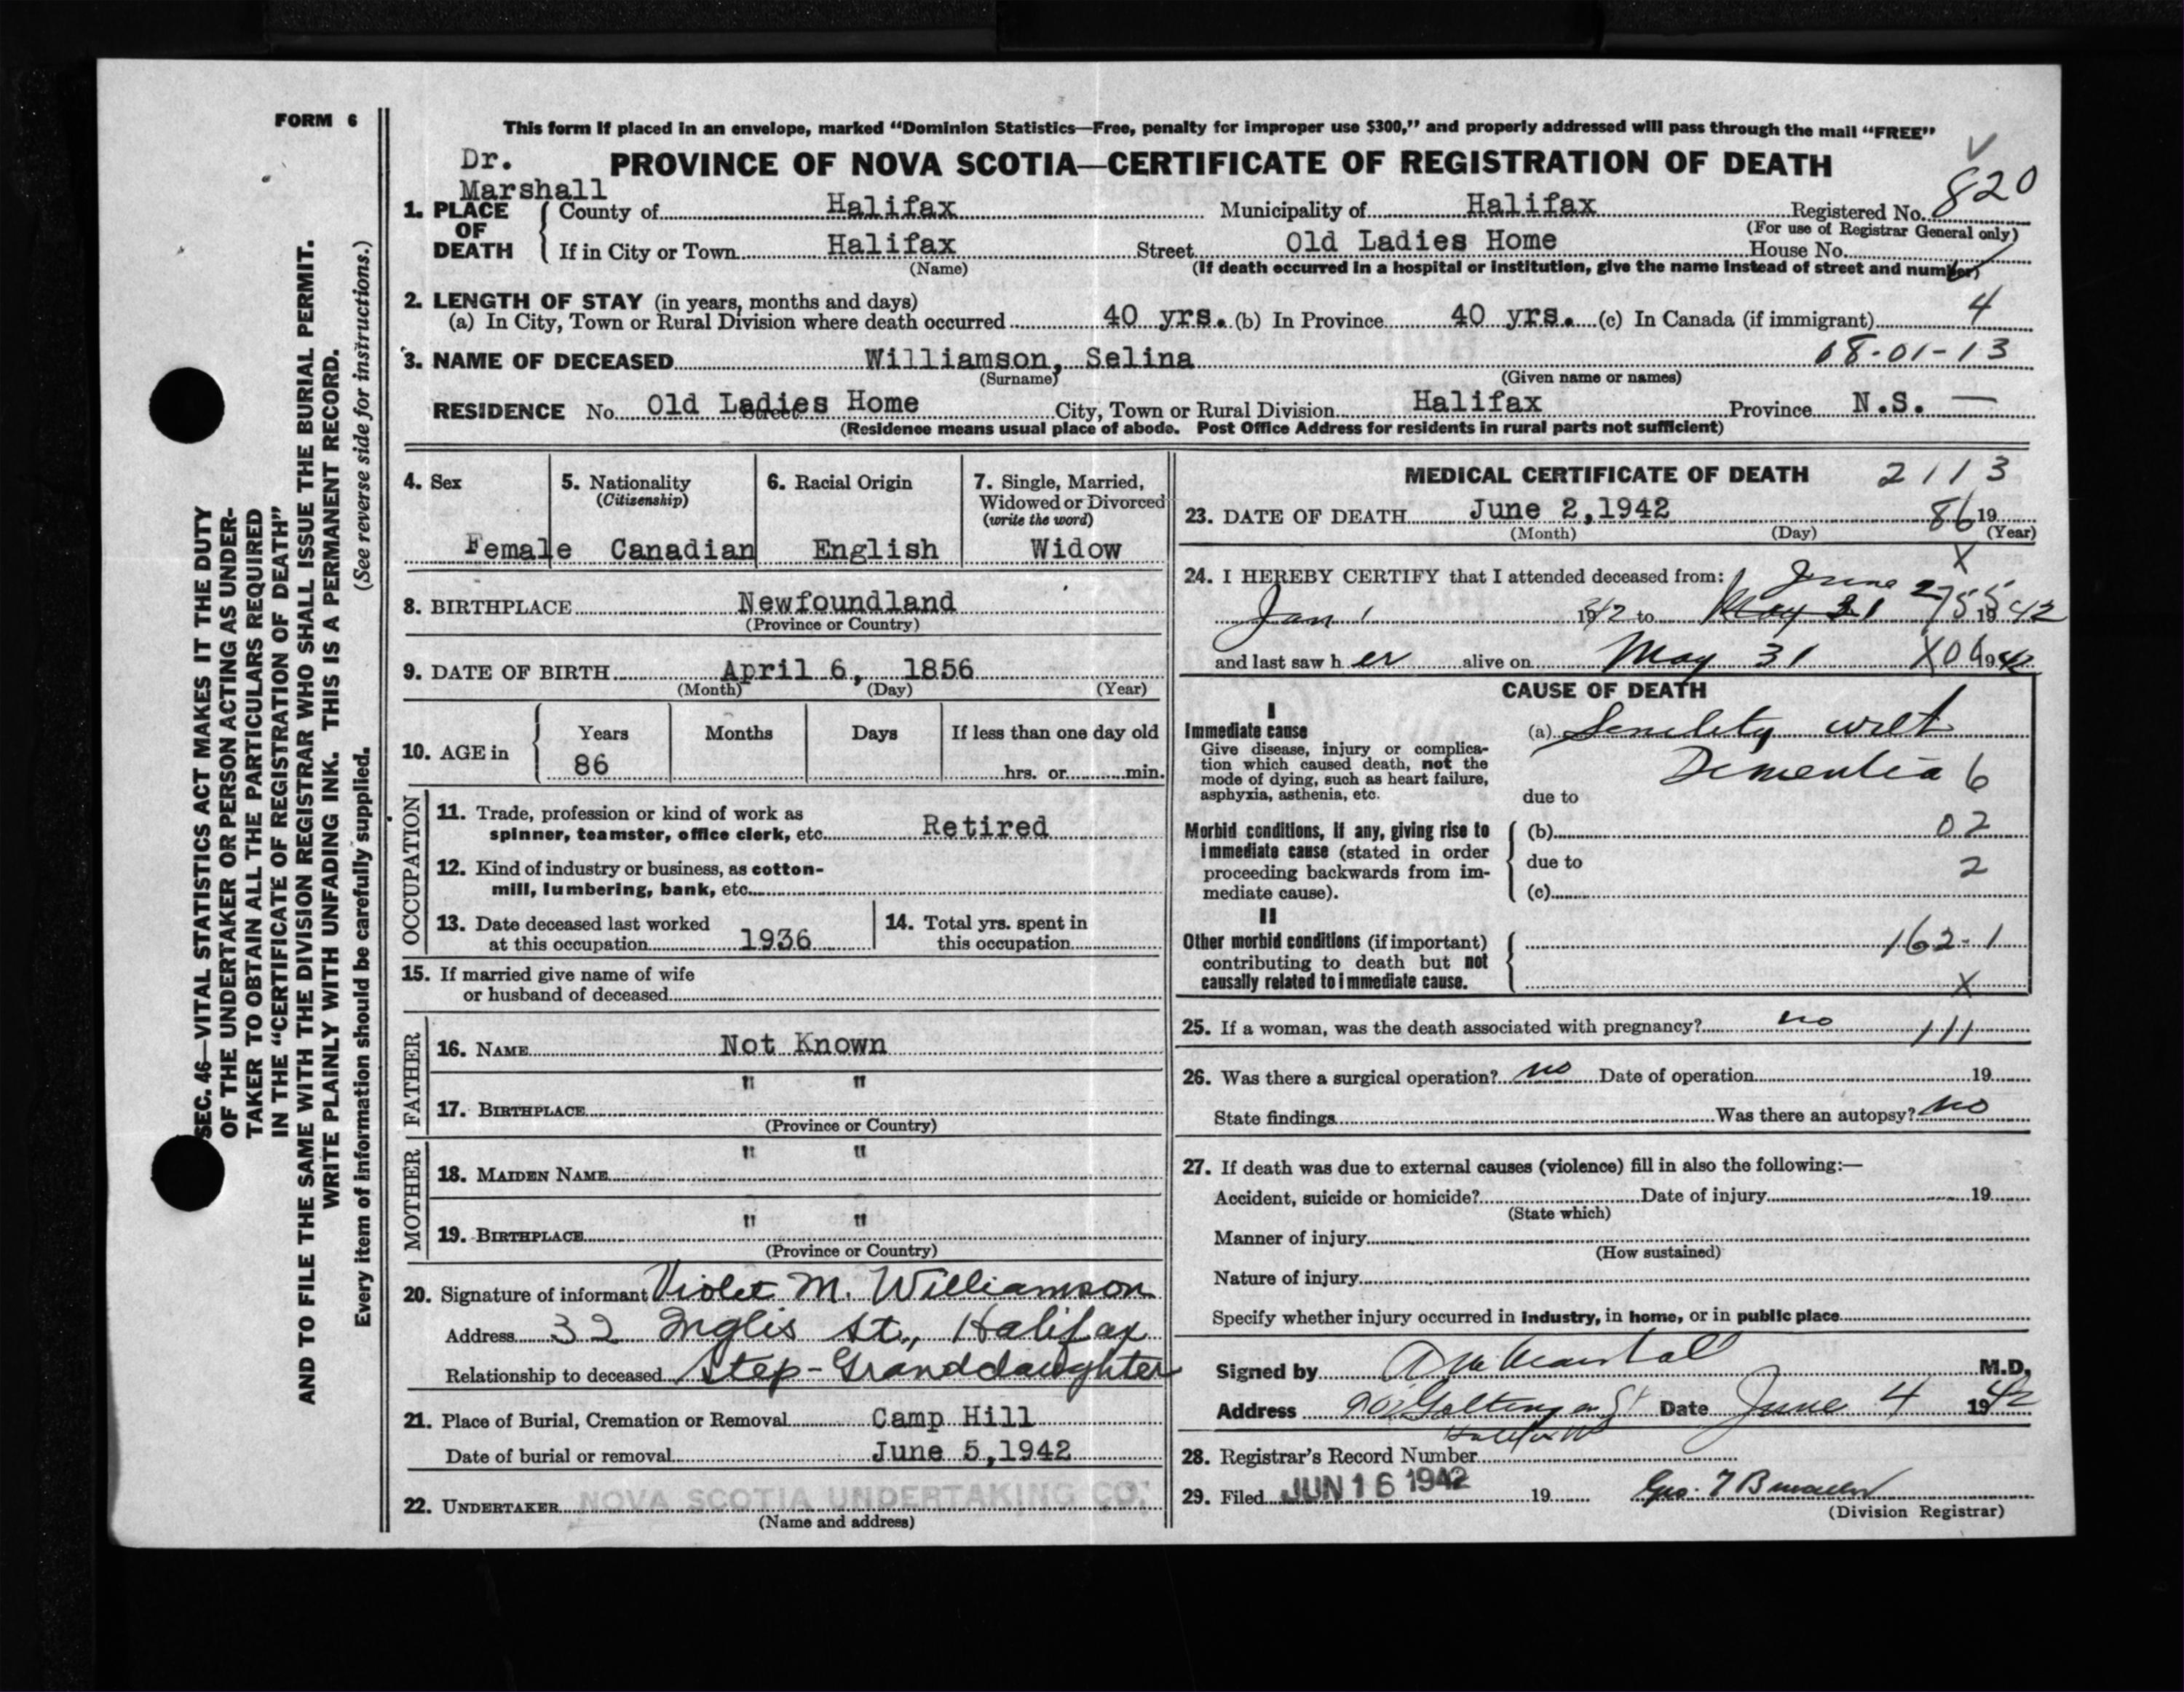 FORM 6
This form if placed in an envelope, marked “Dominion Statistics—Free, penalty for improper use $300,” and properly addressed will pass through the mail “FREE”
Dr.
Marshall
PROVINCE OF NOVA SCOTIA—CERTIFICATE OF REGISTRATION OF DEATH
820
1. PLACE OF DEATH County of Halifax Municipality of Halifax Registered No.
(For use of Registrar General only)
If in City or Town Halifax Street Old Ladies Home House No.
(Name) (If death occurred in a hospital or institution, give the name instead of street and number)
2. LENGTH OF STAY (in years, months and days)
(a) In City, Town or Rural Division where death occurred 40 yrs. (b) In Province 40 yrs. (c) In Canada (if immigrant) 4
3. NAME OF DECEASED Williamson, Selina 08-01-13
(Surname) (Given name or names)
RESIDENCE No. Old Ladies Home Street City, Town or Rural Division Halifax Province N.S. —
(Residence means usual place of abode. Post Office Address for residents in rural parts not sufficient)
4. Sex
Female
5. Nationality
(Citizenship)
Canadian
6. Racial Origin
English
7. Single, Married,
Widowed or Divorced
(write the word)
Widow
8. BIRTHPLACE Newfoundland
(Province or Country)
9. DATE OF BIRTH April 6, 1856
(Month) (Day) (Year)
10. AGE in Years Months Days If less than one day old
86 hrs. or min.
OCCUPATION
11. Trade, profession or kind of work as
spinner, teamster, office clerk, etc. Retired
12. Kind of industry or business, as cotton-
mill, lumbering, bank, etc.
13. Date deceased last worked
at this occupation 1936
14. Total yrs. spent in
this occupation
15. If married give name of wife
or husband of deceased
FATHER
16. NAME Not Known
" "
17. BIRTHPLACE
(Province or Country)
MOTHER
" "
18. MAIDEN NAME
" "
19. BIRTHPLACE
(Province or Country)
20. Signature of informant Violet M. Williamson
Address 32 Inglis St., Halifax
Relationship to deceased Step-Granddaughter
21. Place of Burial, Cremation or Removal Camp Hill
Date of burial or removal June 5,1942
22. UNDERTAKER NOVA SCOTIA UNDERTAKING CO.
(Name and address)
MEDICAL CERTIFICATE OF DEATH 2113
23. DATE OF DEATH June 2,1942 86 19
(Month) (Day) (Year)
X
24. I HEREBY CERTIFY that I attended deceased from: June 2
Jan 1 1942 to May 31 755 1942
and last saw her alive on May 31 X06 1942
CAUSE OF DEATH
I
Immediate cause
Give disease, injury or complica-
tion which caused death, not the
mode of dying, such as heart failure,
asphyxia, asthenia, etc.
(a) Senility with
Dementia 6
due to
Morbid conditions, if any, giving rise to
immediate cause (stated in order
proceeding backwards from im-
mediate cause).
(b) 02
due to 2
(c)
II
Other morbid conditions (if important)
contributing to death but not
causally related to immediate cause.
162-1
X
25. If a woman, was the death associated with pregnancy? no 111
26. Was there a surgical operation? no Date of operation 19
State findings Was there an autopsy? no
27. If death was due to external causes (violence) fill in also the following:—
Accident, suicide or homicide? Date of injury 19
(State which)
Manner of injury
(How sustained)
Nature of injury
Specify whether injury occurred in industry, in home, or in public place
Signed by Marshall M.D.
Address St Date June 4 1942
Halifax
28. Registrar's Record Number
29. Filed JUN 16 1942 19
(Division Registrar)
SEC. 46—VITAL STATISTICS ACT MAKES IT THE DUTY
OF THE UNDERTAKER OR PERSON ACTING AS UNDER-
TAKER TO OBTAIN ALL THE PARTICULARS REQUIRED
IN THE “CERTIFICATE OF REGISTRATION OF DEATH”
AND TO FILE THE SAME WITH THE DIVISION REGISTRAR WHO SHALL ISSUE THE BURIAL PERMIT.
WRITE PLAINLY WITH UNFADING INK. THIS IS A PERMANENT RECORD.
Every item of information should be carefully supplied. (See reverse side for instructions.)